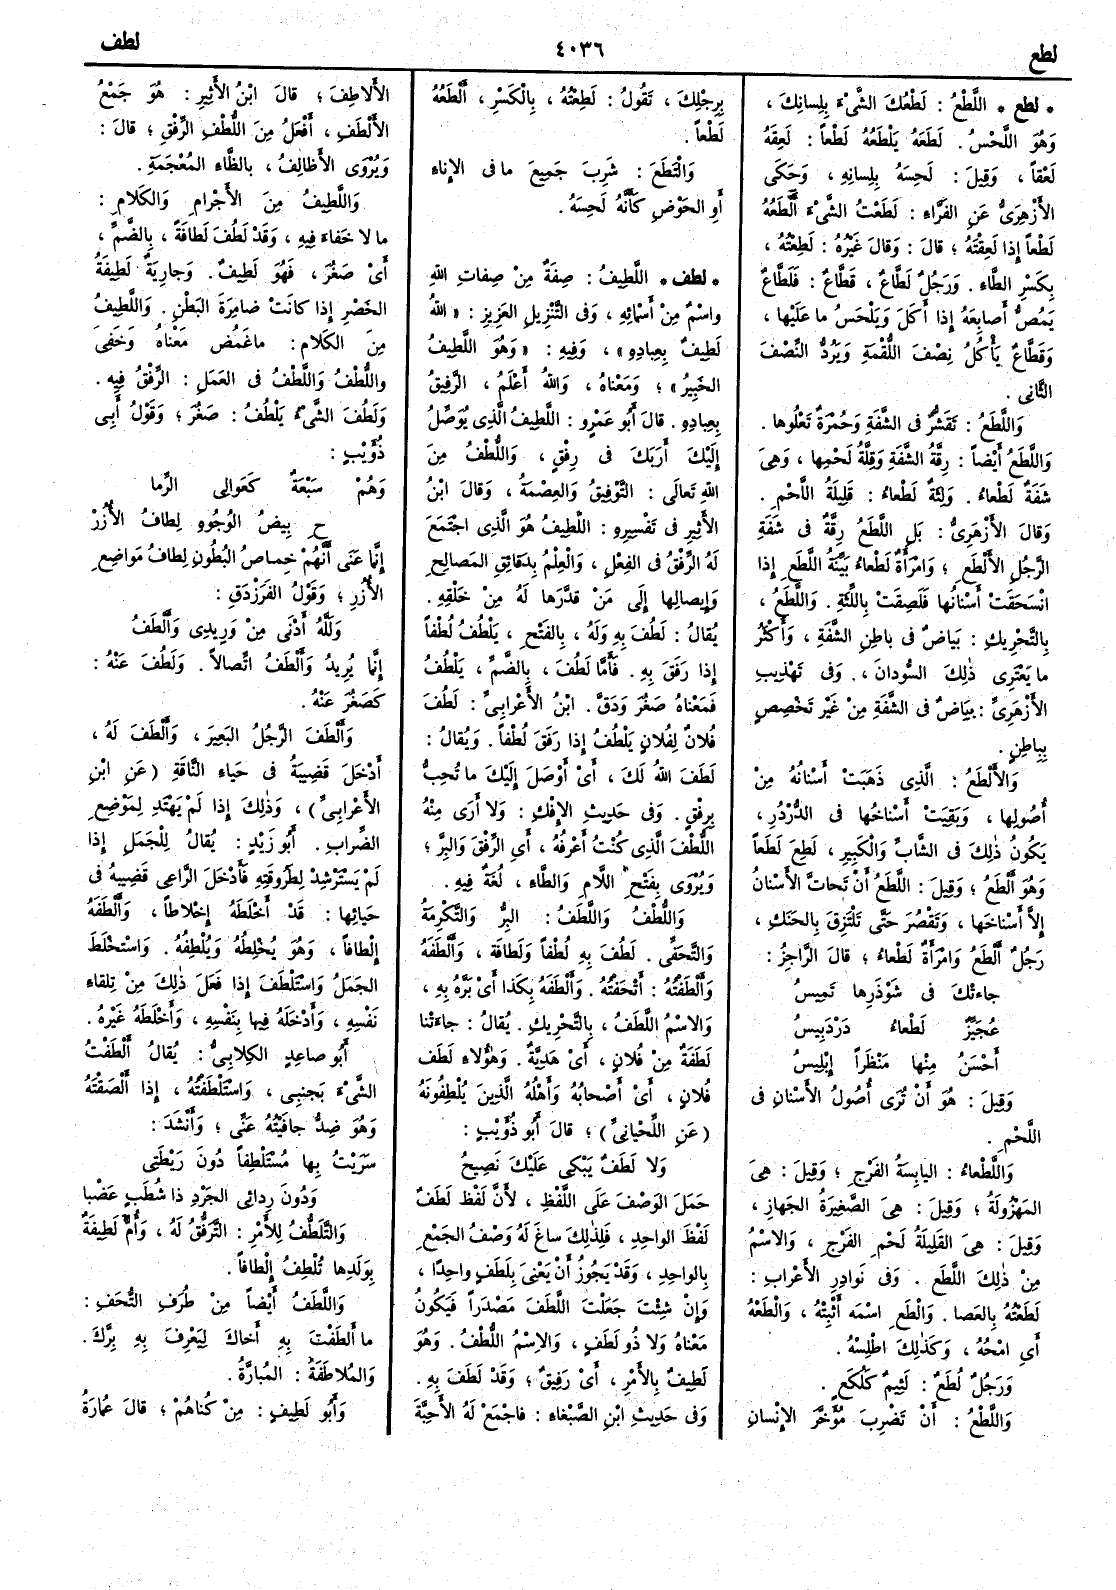 لطع
٤٠٣٦
لطف
* لطع * اللَّطْعُ : لَطْعُكَ الشَّىْءَ بِلِسانِكَ ،
وَهُوَ اللَّحْسُ . لَطَعَهُ يَلْطَعُهُ لَطْعاً : لَعِقَهُ
لَعْقاً ، وَقِيلَ : لَحِسَهُ بِلِسانِهِ ، وَحَكَى
الأَزْهَرِىُّ عَنِ الفَرَّاءِ : لَطَعْتُ الشَّىْءَ أَلْطَعُهُ
لَطْعاً إذا لَعِقْتَهُ ؛ قالَ : وَقالَ غَيْرُهُ : لَطِعْتُهُ ،
بِكَسْرِ الطَّاءِ . وَرَجُلٌ لَطَّاعٌ ، قَطَّاعٌ : فَلَطَّاعٌ
يَمُصُّ أَصابِعَهُ إذا أَكَلَ وَيَلْحَسُ ما عَلَيْها ،
وَقَطَّاعٌ يَأْكُلُ نِصْفَ اللُّقْمَةِ وَيَرُدُّ النِّصْفَ
الثَّانِى .
وَاللَّطَعُ : تَقَشُّرٌ فى الشَّفَةِ وَحُمْرَةٌ تَعْلُوها .
وَاللَّطَعُ أَيْضاً : رِقَّةُ الشَّفَةِ وَقِلَّةُ لَحْمِها ، وَهِىَ
شَفَةٌ لَطْعاءُ . وَلِثَةٌ لَطْعاءُ : قَلِيلَةُ اللَّحْمِ .
وَقالَ الأَزْهَرِىُّ : بَلِ اللَّطَعُ رِقَّةٌ فى شَفَةِ
الرَّجُلِ الأَلْطَعِ ؛ وَامْرَأَةٌ لَطْعاءُ بَيِّنَةُ اللَّطَعِ إذا
انْسَحَقَتْ أَسْنانُها فَلَصِقَتْ بِاللِّثَةِ . وَاللَّطَعُ ،
بِالتَّحْرِيكِ : بَياضٌ فى باطِنِ الشَّفَةِ ، وَأَكْثَرُ
ما يَعْتَرِى ذٰلِكَ السُّودانَ ، وَفى تَهْذِيبِ
الأَزْهَرِىِّ : بَياضٌ فى الشَّفَةِ مِنْ غَيْرِ تَخْصِيصٍ
بِباطِنٍ .
وَالأَلْطَعُ : الَّذِى ذَهَبَتْ أَسْنانُهُ مِنْ
أُصُولِها ، وَبَقِيَتْ أَسْناخُها فى الدُّرْدُرِ ،
يَكُونُ ذٰلِكَ فى الشَّابِّ وَالْكَبِيرِ ، لَطِعَ لَطَعاً
وَهُوَ أَلْطَعُ ؛ وَقِيلَ : اللَّطَعُ أَنْ تَحاتَّ الأَسْنانُ
إلاَّ أَسْناخَها ، وَتَقْصُرَ حَتَّى تَلْتَزِقَ بِالحَنَكِ ،
رَجُلٌ أَلْطَعُ وَامْرَأَةٌ لَطْعاءُ ؛ قالَ الرَّاجِزُ :
جاءَتْكَ فى شَوْذَرِها تَمِيسُ
عُجَيِّزٌ لَطْعاءُ دَرْدَبِيسُ
أَحْسَنُ مِنْها مَنْظَراً إبْلِيسُ
وَقِيلَ : هُوَ أَنْ تُرَى أُصُولُ الأَسْنانِ فى
اللَّحْمِ .
وَاللَّطْعاءُ : اليابِسَةُ الفَرْجِ ؛ وَقِيلَ : هِىَ
المَهْزُولَةُ ؛ وَقِيلَ : هِىَ الصَّغِيرَةُ الجَهازِ ،
وَقِيلَ : هِىَ القَلِيلَةُ لَحْمِ الفَرْجِ ، وَالاسْمُ
مِنْ ذٰلِكَ اللَّطَعُ . وَفى نَوادِرِ الأَعْرابِ :
لَطَعْتُهُ بِالعَصا . وَالْطَعِ اسْمَهُ أَثْبِتْهُ ، وَالْطَعْهُ
أَىِ امْحُهُ ، وَكَذٰلِكَ اطْلِسْهُ .
وَرَجُلٌ لُطَعٌ : لَئِيمٌ كَلُكَعٍ .
وَاللَّطْعُ : أَنْ تَضْرِبَ مُؤَخَّرَ الإنْسانِ
بِرِجْلِكَ ، تَقُولُ : لَطِعْتُهُ ، بِالْكَسْرِ ، أَلْطَعُهُ
لَطْعاً .
وَالْتَطَعَ : شَرِبَ جَمِيعَ ما فى الإناءِ
أَوِ الحَوْضِ كَأَنَّهُ لَحِسَهُ .
* لطف * اللَّطِيفُ : صِفَةٌ مِنْ صِفاتِ اللهِ
واسْمٌ مِنْ أَسْمائِهِ ، وَفى التَّنْزِيلِ العَزِيزِ : « اللهُ
لَطِيفٌ بِعِبادِهِ » ، وَفِيهِ : « وَهُوَ اللَّطِيفُ
الخَبِيرُ » ؛ وَمَعْناهُ ، وَاللهُ أَعْلَمُ ، الرَّفِيقُ
بِعِبادِهِ . قالَ أَبُو عَمْرٍو : اللَّطِيفُ الَّذِى يُوَصِّلُ
إلَيْكَ أَرَبَكَ فى رِفْقٍ ، وَاللُّطْفُ مِنَ
اللهِ تَعالَى : التَّوْفِيقُ وَالعِصْمَةُ ، وَقالَ ابْنُ
الأَثِيرِ فى تَفْسِيرِهِ : اللَّطِيفُ هُوَ الَّذِى اجْتَمَعَ
لَهُ الرِّفْقُ فى الفِعْلِ ، وَالْعِلْمُ بِدَقائِقِ المَصالِحِ
وَإيصالِها إلَى مَنْ قَدَّرَها لَهُ مِنْ خَلْقِهِ .
يُقالُ : لَطَفَ بِهِ وَلَهُ ، بِالفَتْحِ ، يَلْطُفُ لُطْفاً
إذا رَفَقَ بِهِ . فَأَمَّا لَطُفَ ، بِالضَّمِّ ، يَلْطُفُ
فَمَعْناهُ صَغُرَ وَدَقَّ . ابْنُ الأَعْرابِىِّ : لَطَفَ
فُلانٌ لِفُلانٍ يَلْطُفُ إذا رَفَقَ لُطْفاً . وَيُقالُ :
لَطَفَ اللهُ لَكَ ، أَىْ أَوْصَلَ إلَيْكَ ما تُحِبُّ
بِرِفْقٍ . وَفى حَدِيثِ الإفْكِ : وَلا أَرَى مِنْهُ
اللُّطْفَ الَّذِى كُنْتُ أَعْرِفُهُ ، أَىِ الرِّفْقَ وَالبِرَّ ؛
وَيُرْوَى بِفَتْحِ اللَّامِ وَالطَّاءِ ، لُغَةٌ فِيهِ .
وَاللُّطْفُ وَاللَّطَفُ : البِرُّ وَالتَّكْرِمَةُ
وَالتَّحَفِّى . لَطُفَ بِهِ لُطْفاً وَلَطافَةً ، وَأَلْطَفَهُ
وَأَلْطَفْتُهُ : أَتْحَفْتُهُ . وَأَلْطَفَهُ بِكَذا أَىْ بَرَّهُ بِهِ ،
وَالاسْمُ اللَّطَفُ ، بِالتَّحْرِيكِ . يُقالُ : جاءَتْنا
لَطَفَةٌ مِنْ فُلانٍ ، أَىْ هَدِيَّةٌ . وَهٰؤُلاءِ لَطَفُ
فُلانٍ ، أَىْ أَصْحابُهُ وَأَهْلُهُ الَّذِينَ يُلْطِفُونَهُ
( عَنِ اللِّحْيانِىِّ ) ؛ قالَ أَبُو ذُؤَيْبٍ :
وَلا لَطَفٌ يَبْكِى عَلَيْكَ نَصِيحُ
حَمَلَ الوَصْفَ عَلَى اللَّفْظِ ، لأَنَّ لَفْظَ لَطَفٌ
لَفْظُ الواحِدِ ، فَلِذٰلِكَ ساغَ لَهُ وَصْفُ الجَمْعِ
بِالواحِدِ ، وَقَدْ يَجُوزُ أَنْ يَعْنِىَ بِلَطَفٍ واحِدًا ،
وَإنْ شِئْتَ جَعَلْتَ اللَّطَفَ مَصْدَراً فَيَكُونُ
مَعْناهُ وَلا ذُو لَطَفٍ ، وَالاِسْمُ اللُّطْفُ . وَهُوَ
لَطِيفٌ بِالأَمْرِ ، أَىْ رَفِيقٌ ؛ وَقَدْ لَطَفَ بِهِ .
وَفى حَدِيثِ ابْنِ الصَّبْغاءِ : فَاجْمَعْ لَهُ الأَحِبَّةَ
الأَلاطِفَ ؛ قالَ ابْنُ الأَثِيرِ : هُوَ جَمْعُ
الأَلْطَفِ ، أَفْعَلُ مِنَ اللُّطْفِ الرِّفْقِ ؛ قالَ :
وَيُرْوَى الأَظالِفُ ، بالظَّاءِ المُعْجَمَةِ .
وَاللَّطِيفُ مِنَ الأَجْرامِ وَالكَلامِ :
ما لا خَفاءَ فِيهِ ، وَقَدْ لَطُفَ لَطافَةً ، بِالضَّمِّ ،
أَىْ صَغُرَ ، فَهُوَ لَطِيفٌ . وَجارِيَةٌ لَطِيفَةُ
الخَصْرِ إذا كانَتْ ضامِرَةَ البَطْنِ . وَاللَّطِيفُ
مِنَ الكَلامِ : ما غَمُضَ مَعْناهُ وَخَفِىَ
وَاللُّطْفُ وَاللَّطَفُ فى العَمَلِ : الرِّفْقُ فِيهِ .
وَلَطُفَ الشَّىْءُ يَلْطُفُ : صَغُرَ ؛ وَقَوْلُ أَبِى
ذُؤَيْبٍ :
وَهُمْ سَبْعَةٌ كَعَوالِى الرِّما
حِ بِيضُ الوُجُوهِ لِطافُ الأُزُرْ
إنَّما عَنَى أَنَّهُمْ خِماصُ البُطُونِ لِطافُ مَواضِعِ
الأُزُرِ ؛ وَقَوْلُ الفَرَزْدَقِ :
وَلَلَّهُ أَدْنَى مِنْ وَرِيدِى وَأَلْطَفُ
إنَّما يُرِيدُ وَأَلْطَفُ اتِّصالاً . وَلَطُفَ عَنْهُ :
كَصَغُرَ عَنْهُ .
وَأَلْطَفَ الرَّجُلُ البَعِيرَ ، وَأَلْطَفَ لَهُ ،
أَدْخَلَ قَضِيبَهُ فى حَياءِ النَّاقَةِ ( عَنِ ابْنِ
الأَعْرابِىِّ ) ، وَذٰلِكَ إذا لَمْ يَهْتَدِ لِمَوْضِعِ
الضِّرابِ . أَبُو زَيْدٍ : يُقالُ لِلْجَمَلِ إذا
لَمْ يَسْتَرْشِدْ لِطَرُوقَتِهِ فَأَدْخَلَ الرَّاعِى قَضِيبَهُ فى
حَيائِها : قَدْ أَخْلَطَهُ إخْلاطاً ، وَأَلْطَفَهُ
إلْطافاً ، وَهُوَ يُخْلِطُهُ وَيُلْطِفُهُ . وَاسْتَخْلَطَ
الجَمَلُ وَاسْتَلْطَفَ إذا فَعَلَ ذٰلِكَ مِنْ تِلْقاءِ
نَفْسِهِ ، وَأَدْخَلَهُ فِيها بِنَفْسِهِ ، وَأَخْلَطَهُ غَيْرُهُ .
أَبُو صاعِدٍ الكِلابِىُّ : يُقالُ أَلْطَفْتُ
الشَّىْءَ بِجَنْبِى ، وَاسْتَلْطَفْتُهُ ، إذا أَلْصَقْتَهُ
وَهُوَ ضِدُّ جافَيْتُهُ عَنِّى ؛ وَأَنْشَدَ :
سَرَيْتُ بِها مُسْتَلْطِفاً دُونَ رَيْطَتِى
وَدُونَ رِدائِى الجَرْدِ ذا شُطَبٍ عَضْبا
وَالتَّلَطُّفُ لِلأَمْرِ : التَّرَفُّقُ لَهُ ، وَأُمٌّ لَطِيفَةٌ
بِوَلَدِها تُلْطِفُ إلْطافاً .
وَاللَّطَفُ أَيْضاً مِنْ طُرَفِ التُّحَفِ :
ما أَلْطَفْتَ بِهِ أَخاكَ لِيَعْرِفَ بِهِ بِرَّكَ .
وَالمُلاطَفَةُ : المُبارَّةُ .
وَأَبُو لَطِيفٍ : مِنْ كُناهُمْ ؛ قالَ عُمارَةُ